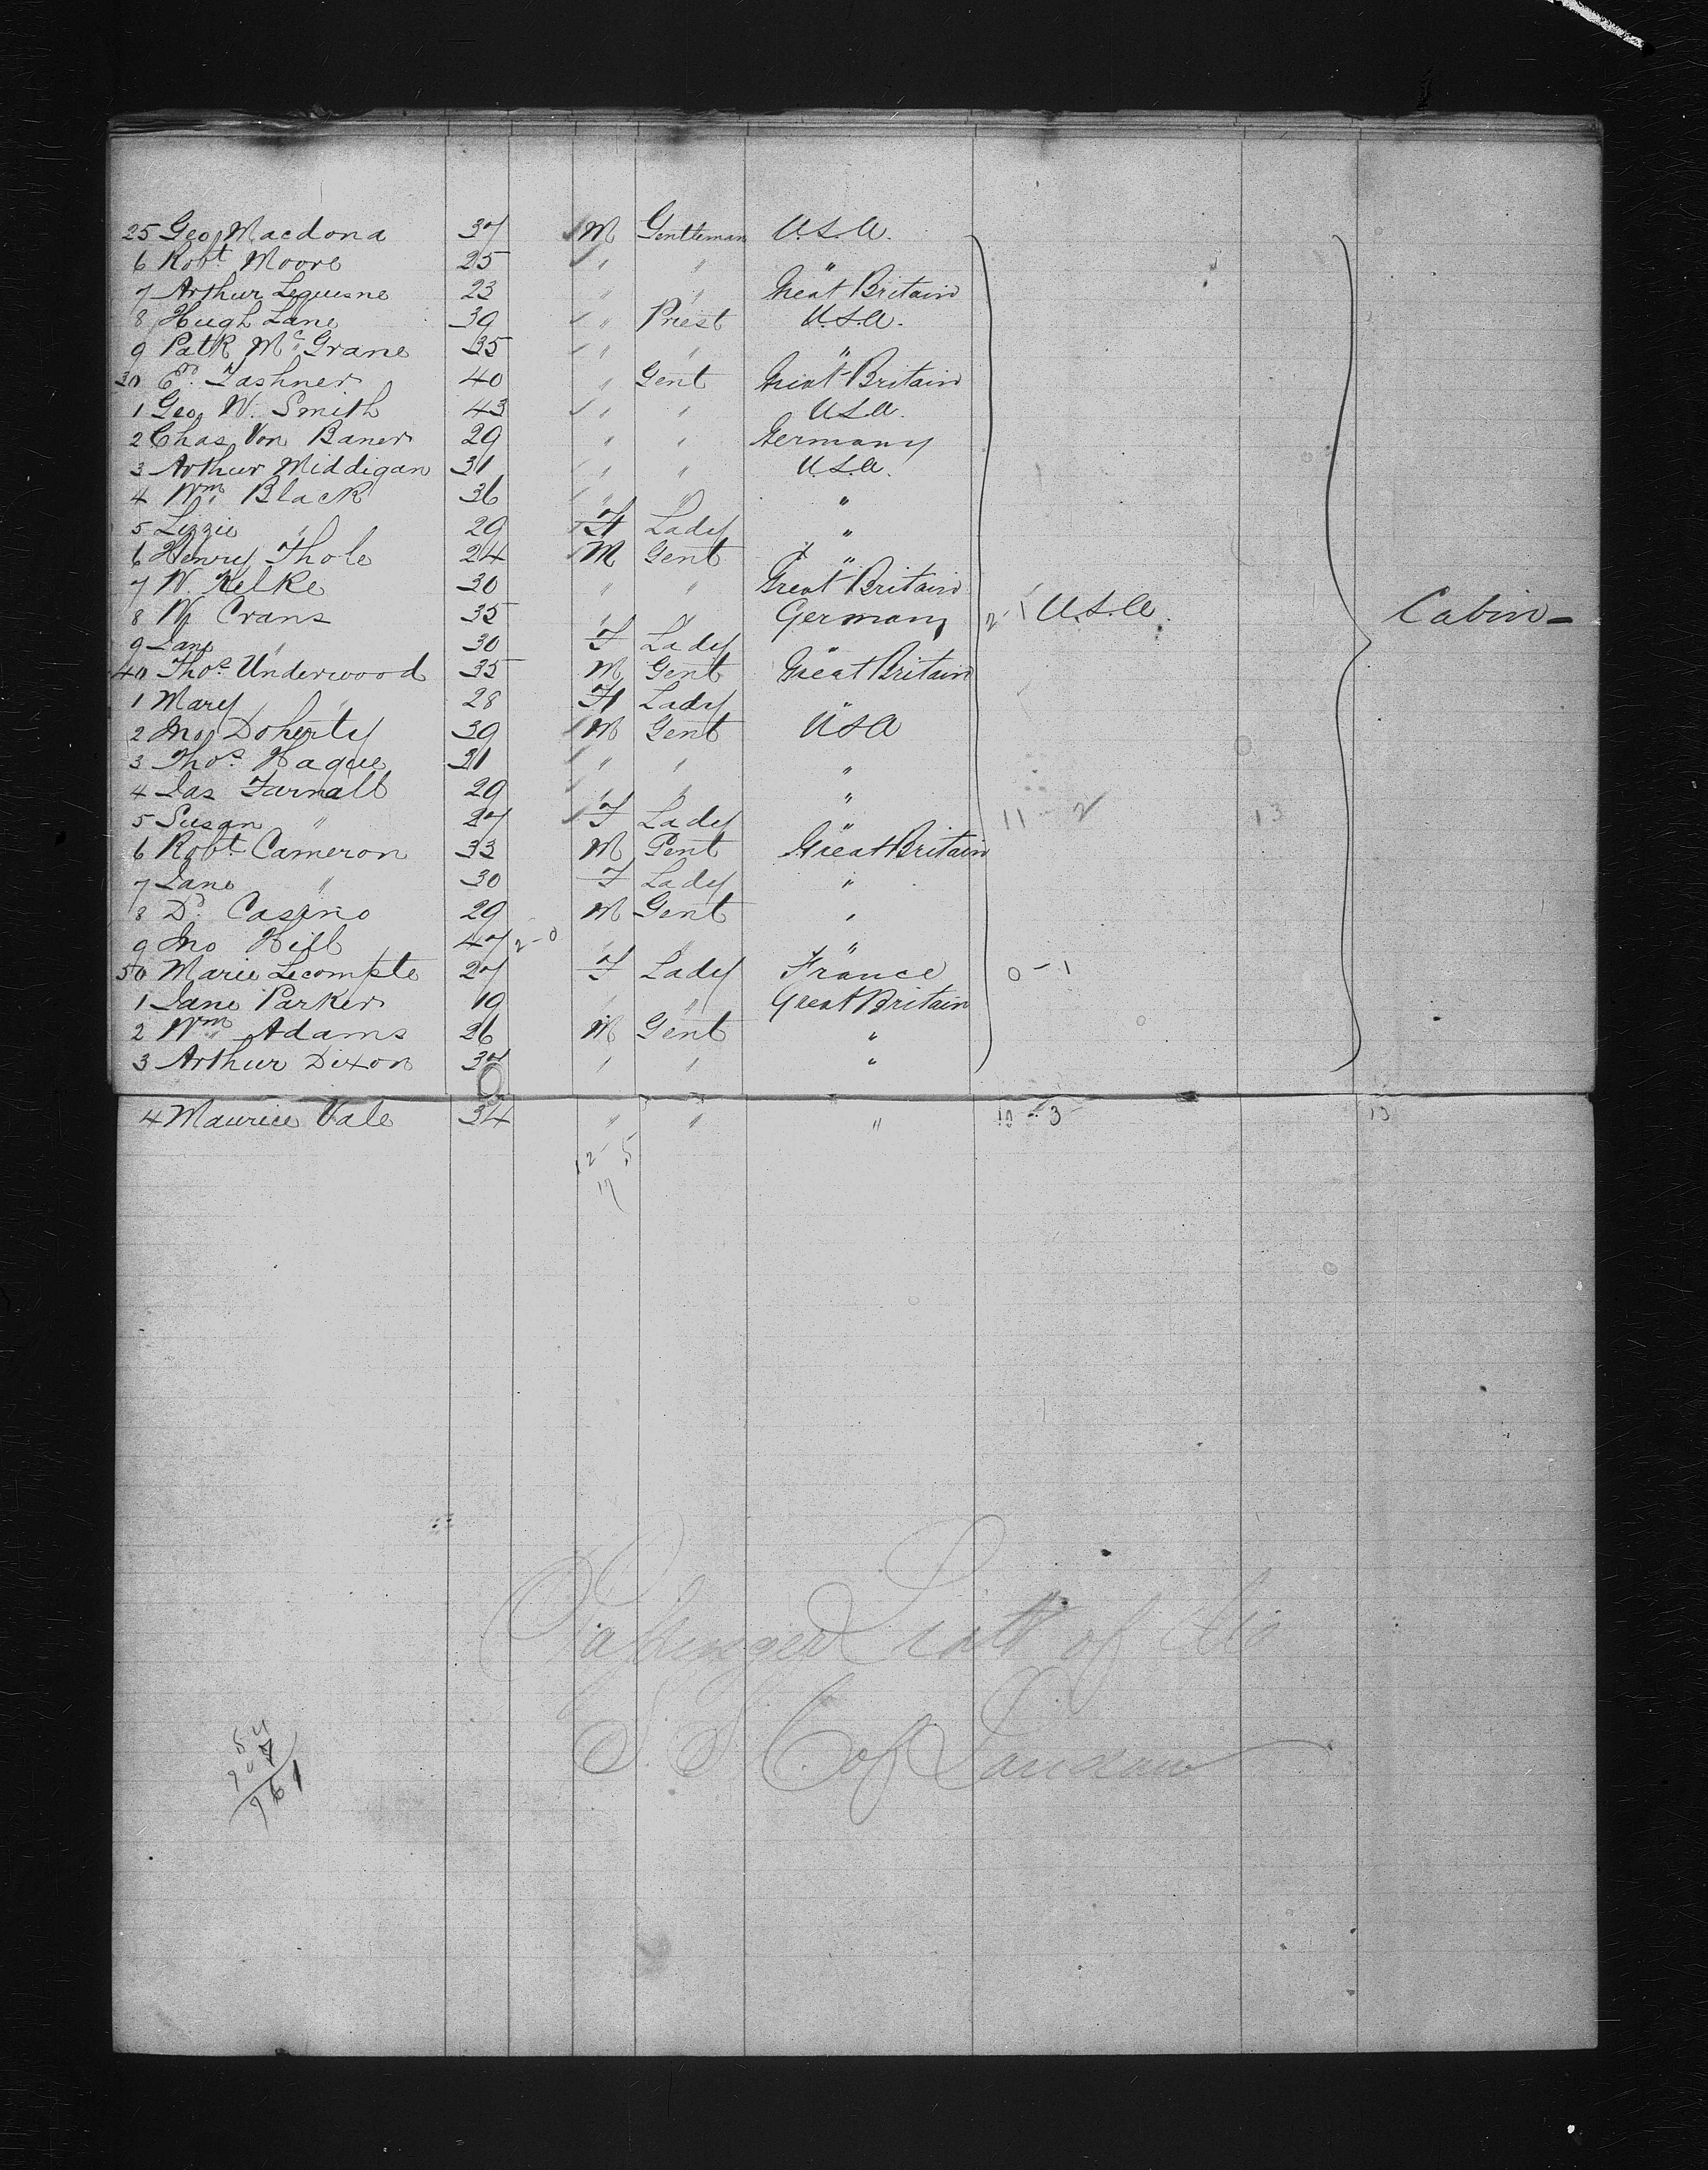 25 Geo Macdona 37 M Gentleman U.S.A.
6 Robt. Moore 25 " " "
7 Arthur Lequesne 23 " " Great Britain
8 Hugh Lane 39 " Priest U.S.A.
9 Patk McGrane 35 " " "
30 Ed. Lashner 40 " Gent Great Britain
1 Geo W. Smith 43 " " U.S.A.
2 Chas Von Baner 29 " " Germany
3 Arthur Middigan 31 " " U.S.A.
4 Wm Black 36 " " "
5 Lizzie " 29 F Lady "
6 Henry Thole 24 M Gent "
7 W. Kelke 30 " " Great Britain
8 W Crans 35 " " Germany 2-1 U.S.A. Cabin-
9 Jane " 30 F Lady "
40 Thos. Underwood 35 M Gent Great Britain
1 Mary " 28 F Lady "
2 Jno Doherty 39 M Gent USA
3 Thos. Hague 31 " " "
4 Jas Farnall 29 " " "
5 Susan " 27 F Lady " 11-2 13
6 Robt. Cameron 33 M Gent Great Britain
7 Jane " 30 F Lady "
8 D. Casino 29 M Gent "
9 Jno Hill 47 2-0 " " "
50 Marie Lecompte 27 F Lady France 0-1
1 Jane Parker 19 " " Great Britain
2 Wm Adams 26 M Gent "
3 Arthur Dixon 37 " " "
4 Maurice Vale 34 " " " 10-3 13
12-5
17
Passenger List of
S. S. C of
54
907
961